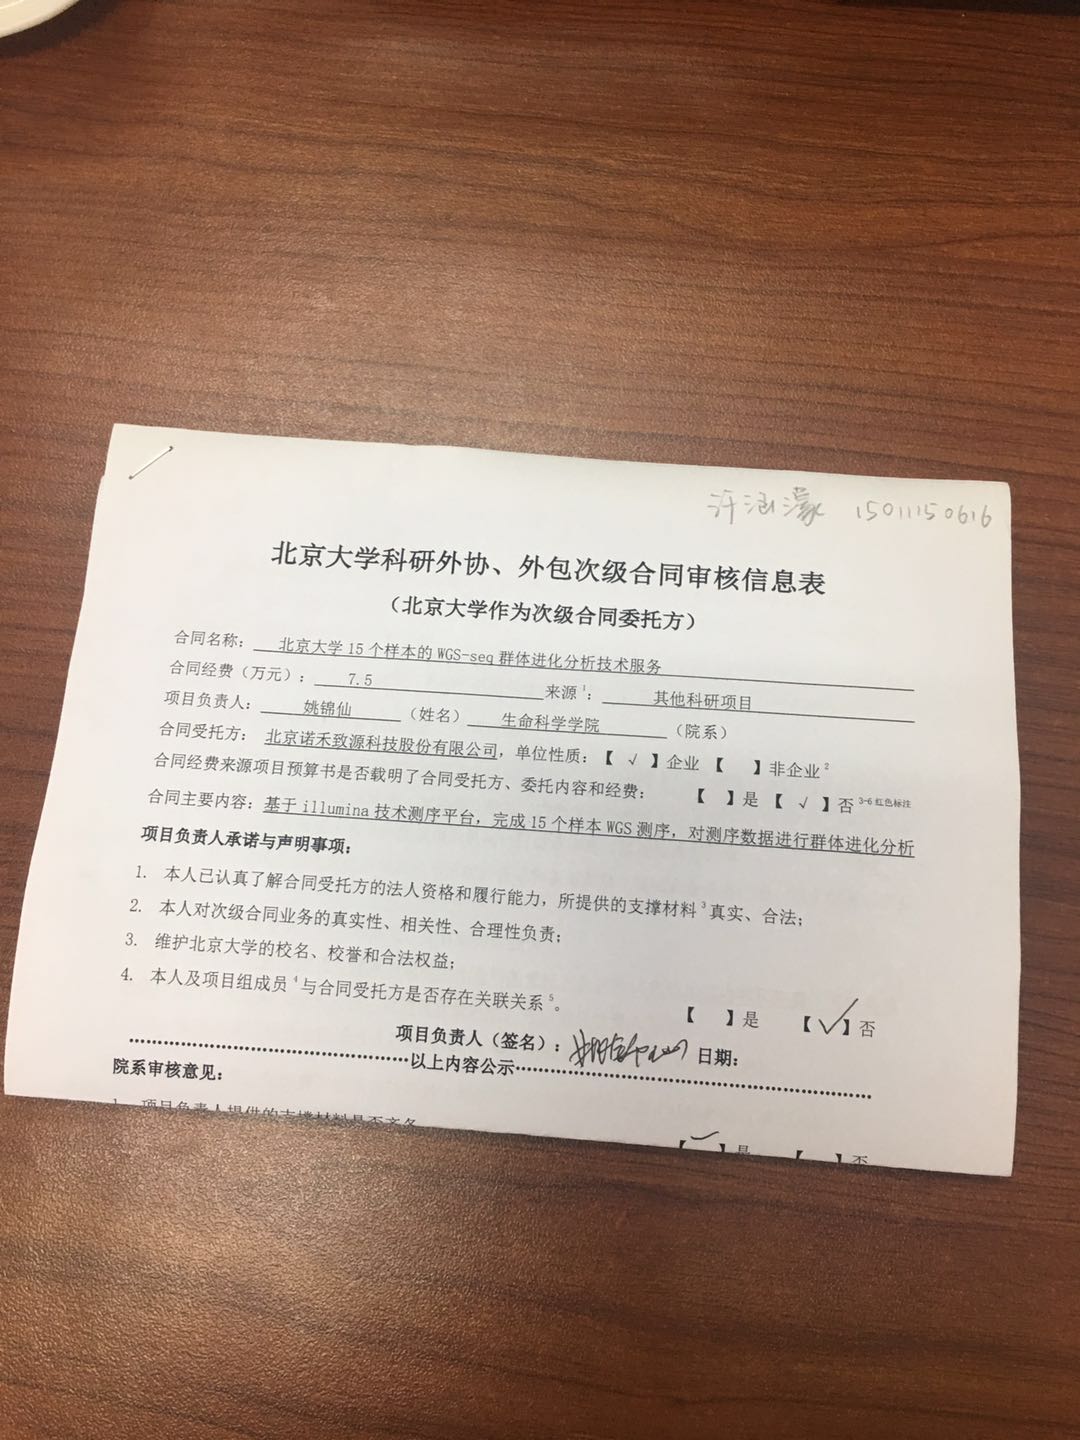 许涵濛 15011150616
北京大学科研外协、外包次级合同审核信息表
（北京大学作为次级合同委托方）
合同名称： 北京大学15个样本的WGS-seq群体进化分析技术服务
合同经费（万元）： 7.5 来源1： 其他科研项目
项目负责人： 姚锦仙 （姓名） 生命科学学院 （院系）
合同受托方： 北京诺禾致源科技股份有限公司，单位性质：【 √ 】企业 【 】非企业2
合同经费来源项目预算书是否载明了合同受托方、委托内容和经费： 【 】是 【 √ 】否 3-6 红色标注
合同主要内容：基于illumina技术测序平台，完成15个样本WGS测序，对测序数据进行群体进化分析
项目负责人承诺与声明事项：
1. 本人已认真了解合同受托方的法人资格和履行能力，所提供的支撑材料3真实、合法；
2. 本人对次级合同业务的真实性、相关性、合理性负责；
3. 维护北京大学的校名、校誉和合法权益；
4. 本人及项目组成员4与合同受托方是否存在关联关系5。 【 】是 【√】否
项目负责人（签名）：姚锦仙 日期：
以上内容公示
院系审核意见：
1. 项目负责人提供的支撑材料是否齐备 【√】是 【 】否